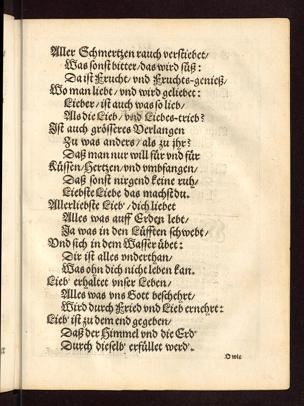 Aller Schmertzen rauch verstiebet/
Was sonst bitter/das wird süß:
Da ist Frucht/ vnd Fruchts-genieß/
Wo man liebt/ vnd wird geliebet:
Lieber/ ist auch was so lieb/
Als die Lieb/ vnd Liebes-trieb?
Ist auch grösseres Verlangen
Zu was anders/ als zu jhr?
Daß man nur will für vnd für
Küssen/Hertzen/vnd vmbfangen/
Daß sonst nirgend keine ruh/
Liebste Liebe das machst du.
Allerliebste Lieb'/dich liebet
Alles was auff Erden lebt/
Ja was in den Lüfften schwebt/
Vnd sich in dem Wasser übet:
Dir ist alles vnderthan/
Was ohn dich nicht leben kan.
Lieb' erhältet vnser Leben/
Alles was vns Gott beschehrt/
Wird durch Fried vnd Lieb ernehrt:
Lieb' ist zu dem end gegeben/
Daß der Himmel vnd die Erd'
Durch dieselb' erfüllet werd'.
O wie